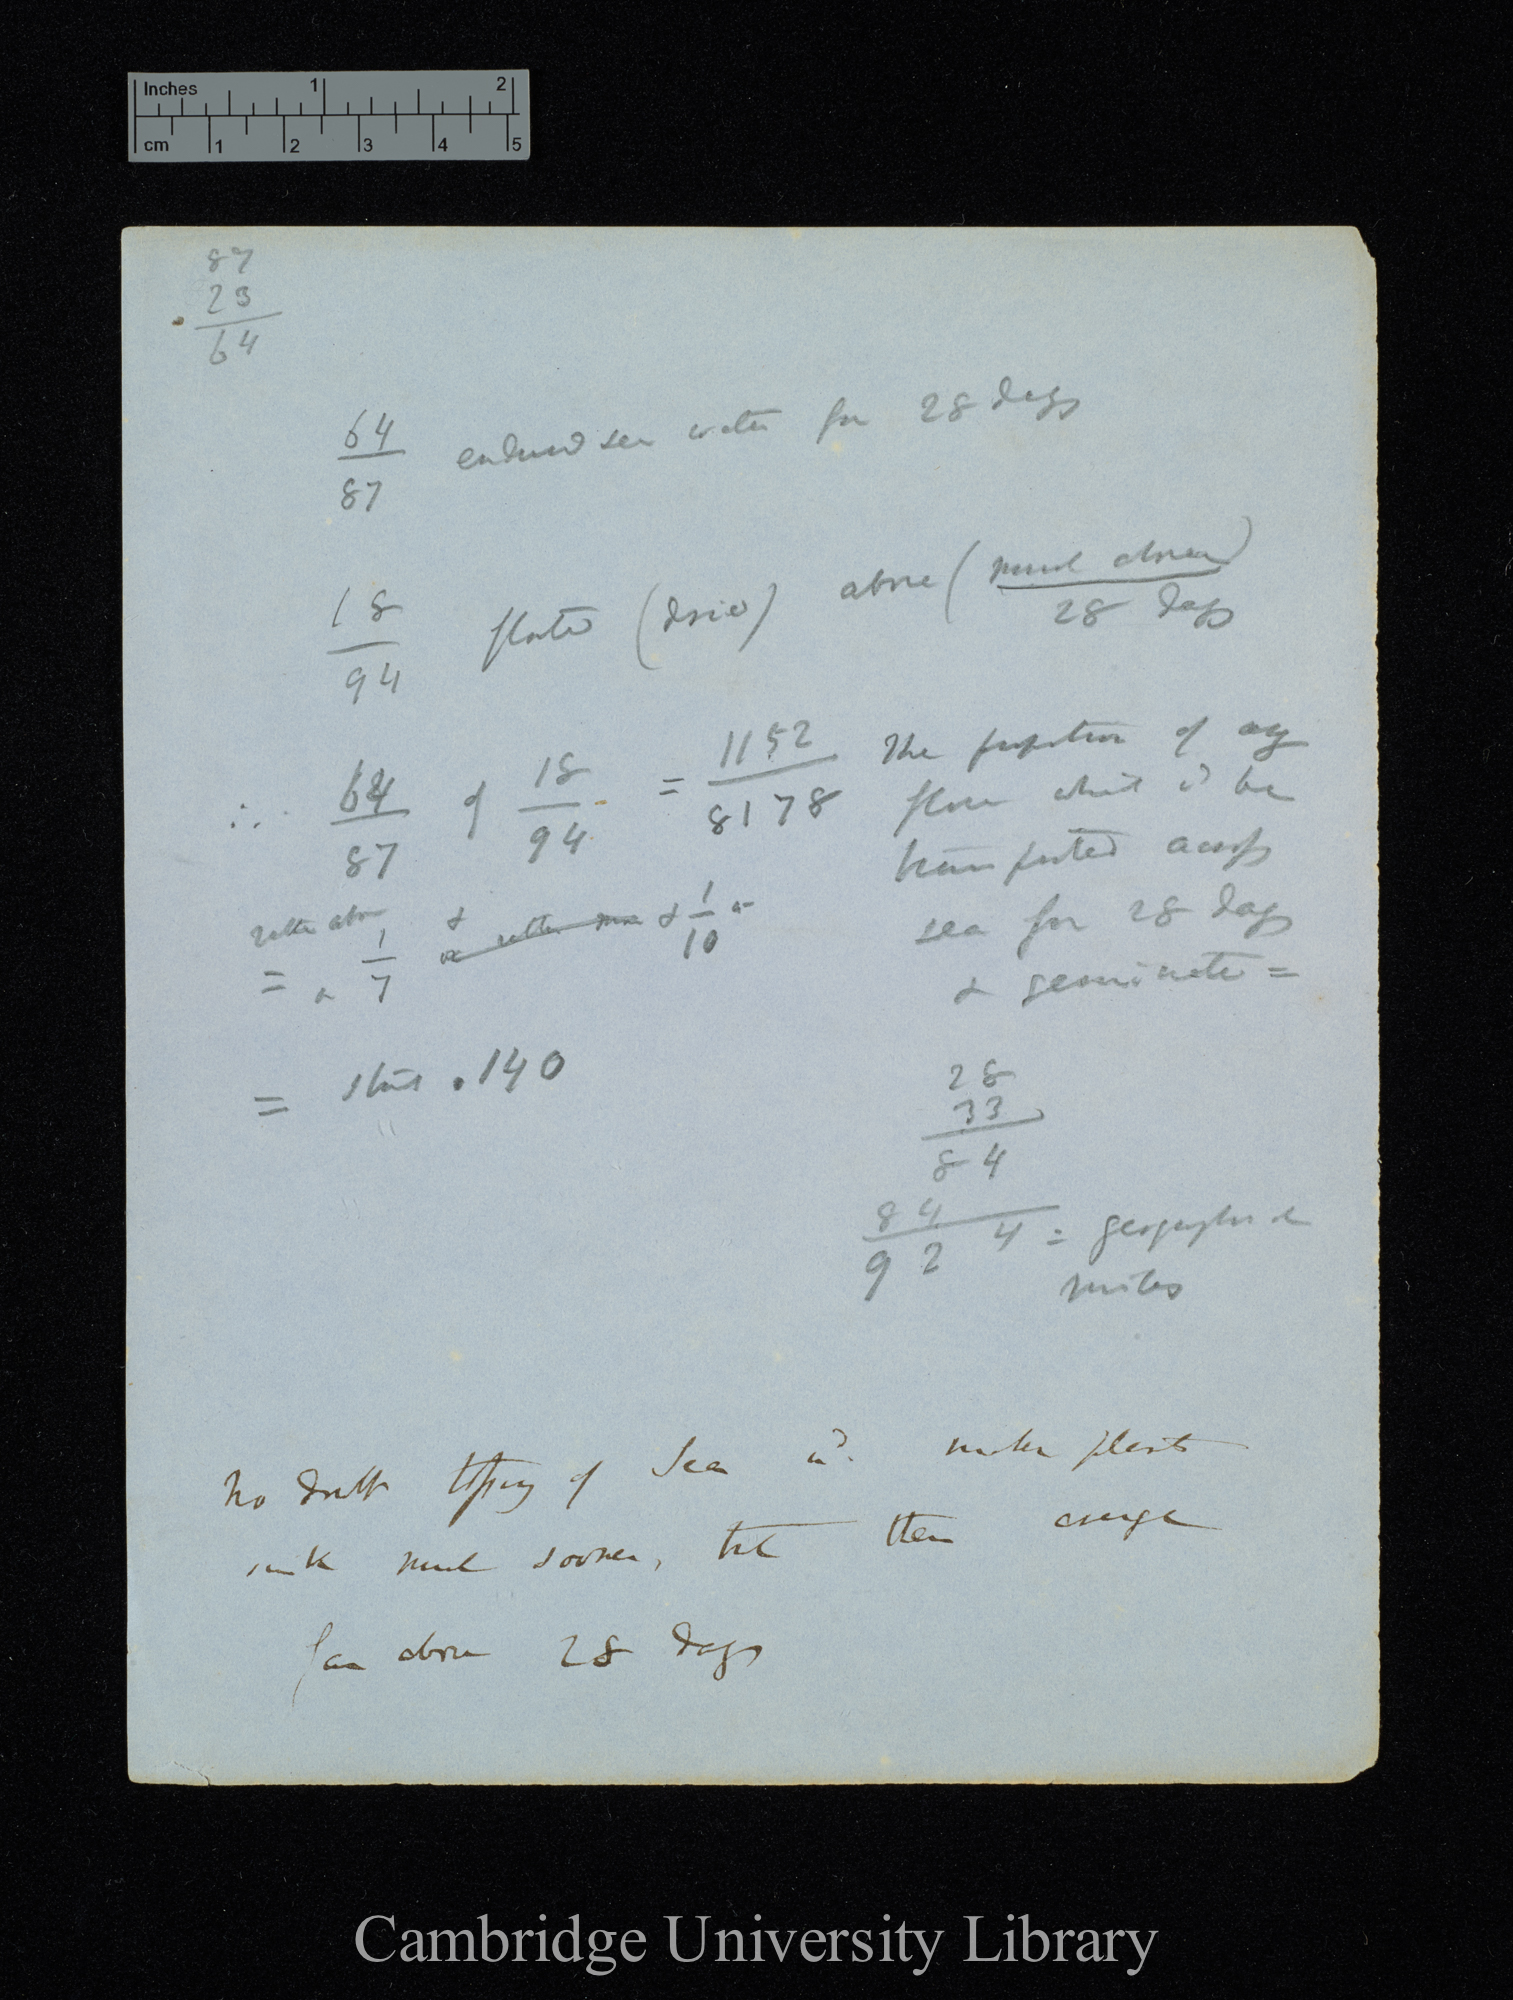 Inches 1 2
cm 1 2 3 4 5
87
23
64
64
87
endured sea water for 28 days
18
94
floated (dried) above (much above)
28 days
∴ 64/87 of 18/94 = 1152/8178
The proportion of any
flora which wd be
transported across
sea for 28 days
& germinate =
rather above
= or 1/7 & 1/10
= about .140
28
33
84
84
924 = geographical
miles
No doubt tossing of sea wd. make plants
sink much sooner, but then average
far above 28 days
Cambridge University Library